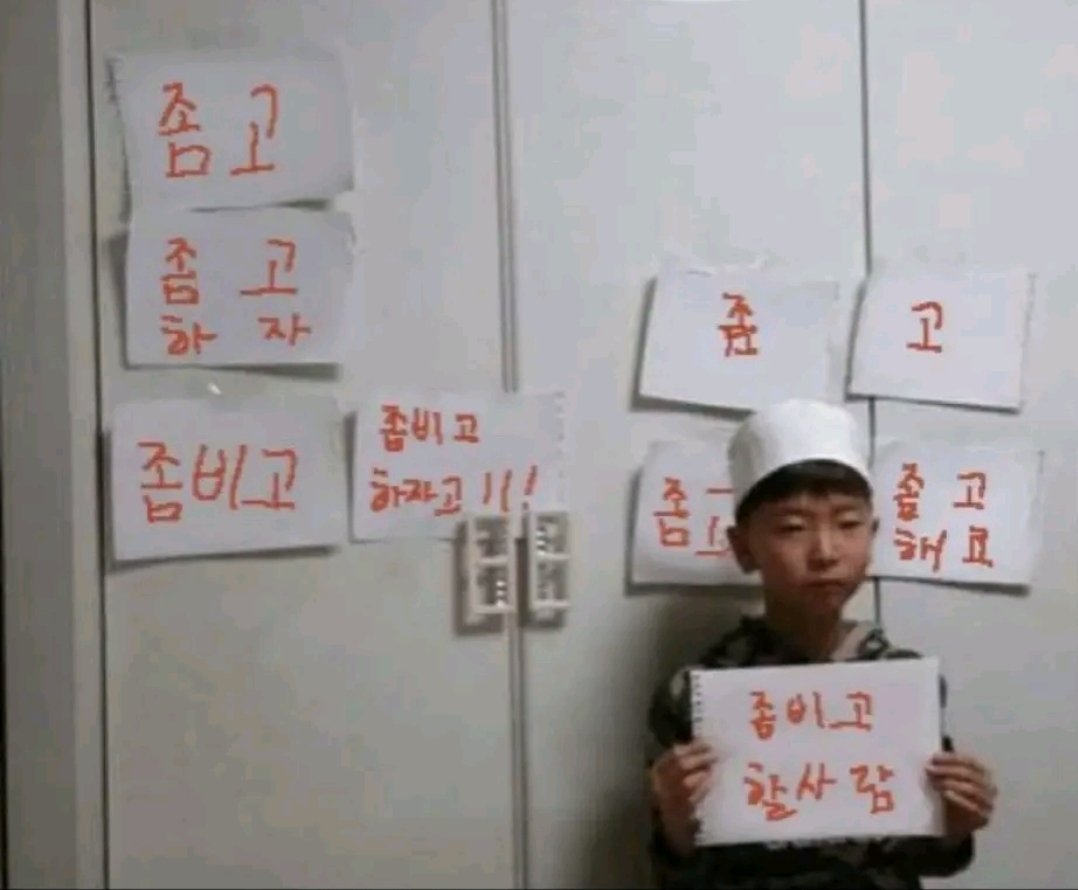 좀고
좀고
하자
좀비고
좀비고
하자고!!!
좀
고
좀고
좀고
해요
좀비고
할사람